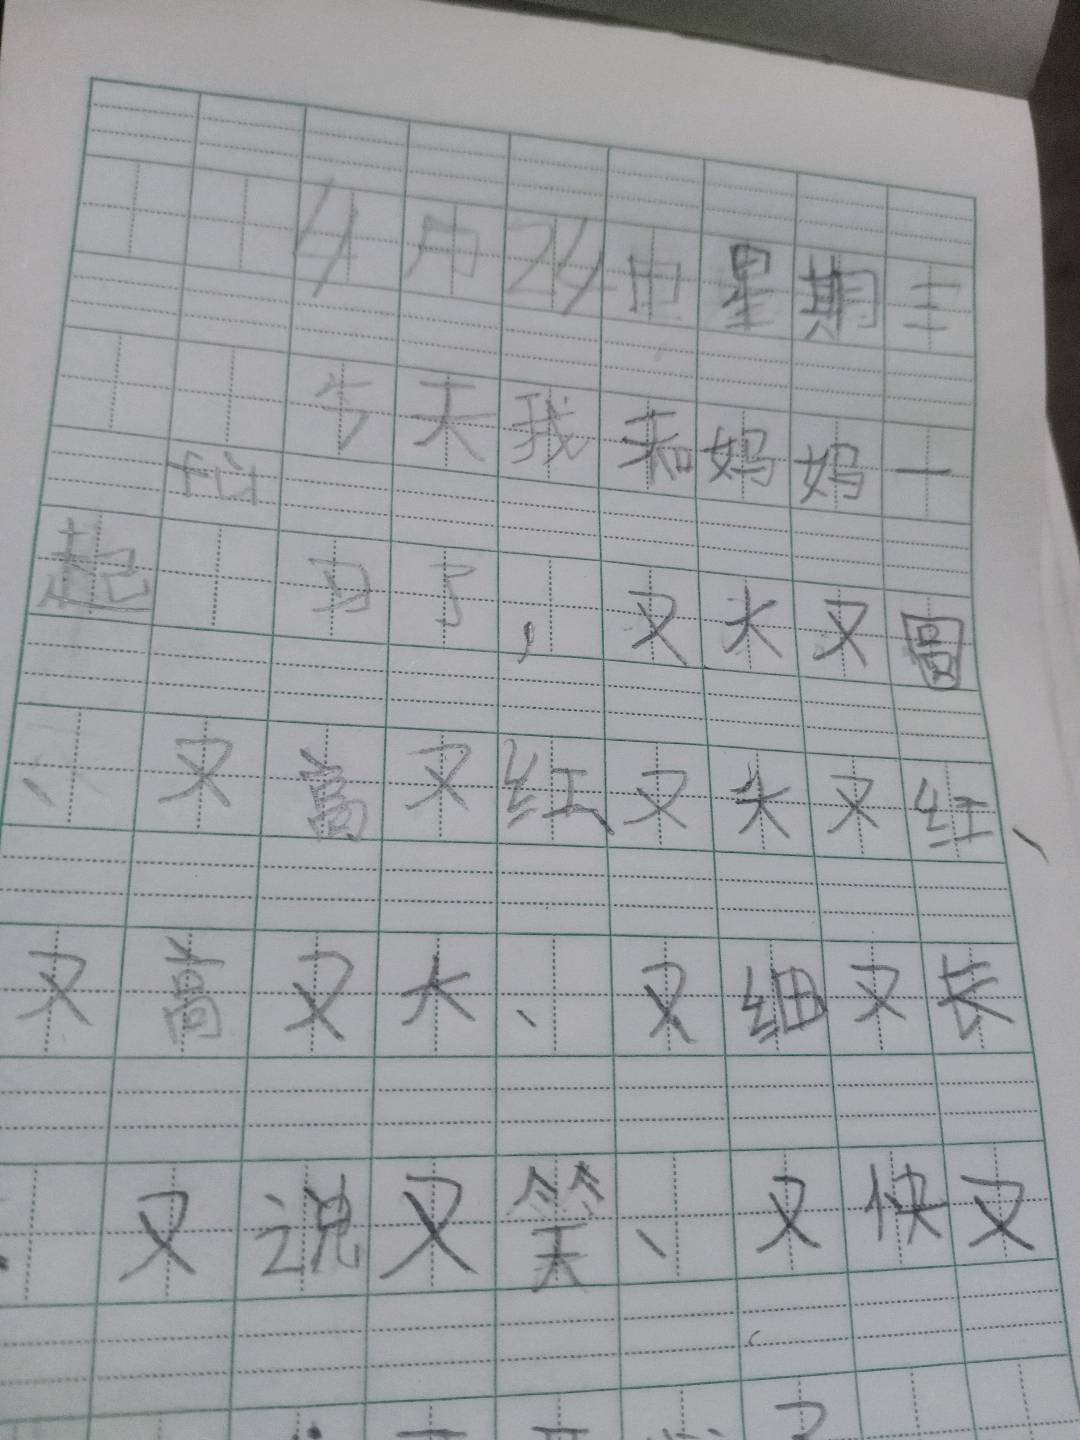 4月24日星期三
今天我和妈妈一
fù
起 习了，又大又圆
、又高又红、又大又红、
又高又大、又细又长
、又说又笑、又快又